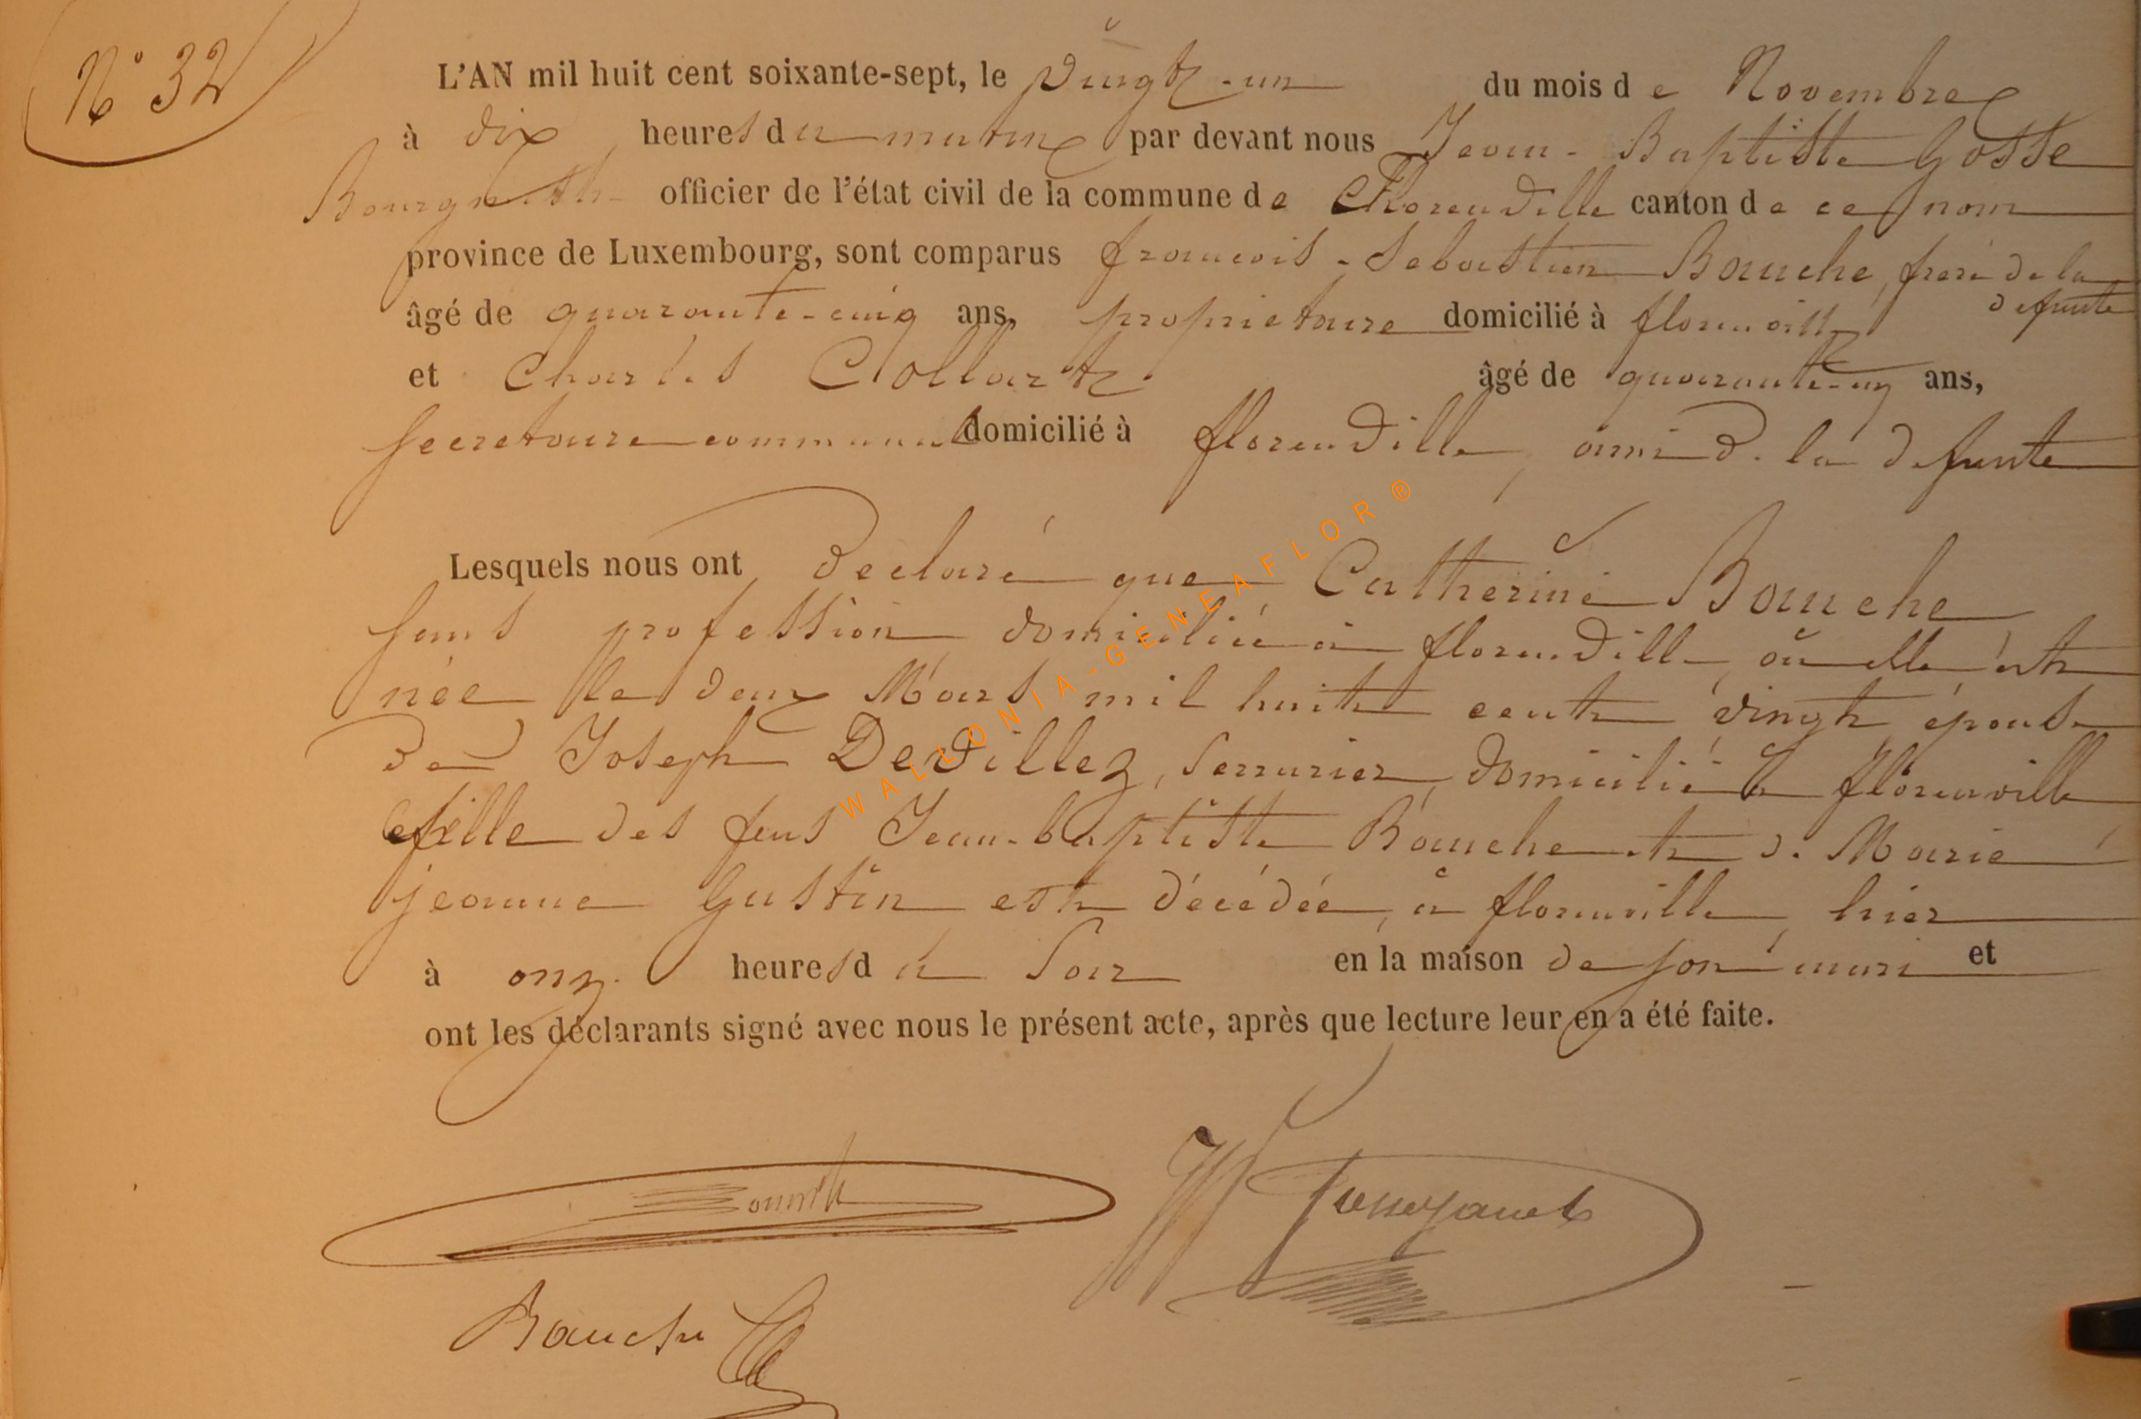 N° 32
L'AN mil huit cent soixante-sept, le Vingt-un du mois de Novembre
à dix heures du matin par devant nous Jean-Baptiste Gosse
Bourgmestre officier de l'état civil de la commune de Florenville canton de ce nom
province de Luxembourg, sont comparus francois-Sebastien Bauche, frere de la
defunte
âgé de quarante-cinq ans, proprietaire domicilié à florenville
et Charles Collart âgé de quarante-un ans,
secretaire communal domicilié à florenville, ami de la defunte
Lesquels nous ont declaré que Catherine Bauche
sans profession domiciliée à florenville où elle est
née le deux Mars mil huit cent vingt épouse
de Joseph Devillez, serrurier, domicilié à florenville
fille des feus Jean-baptiste Bauche et de Marie
jeanne Gustin est décédée, à florenville, hier
à onze heures du soir en la maison de son mari et
ont les déclarants signé avec nous le présent acte, après que lecture leur en a été faite.
Bauche
WALLONIA-GENEAFLOR®